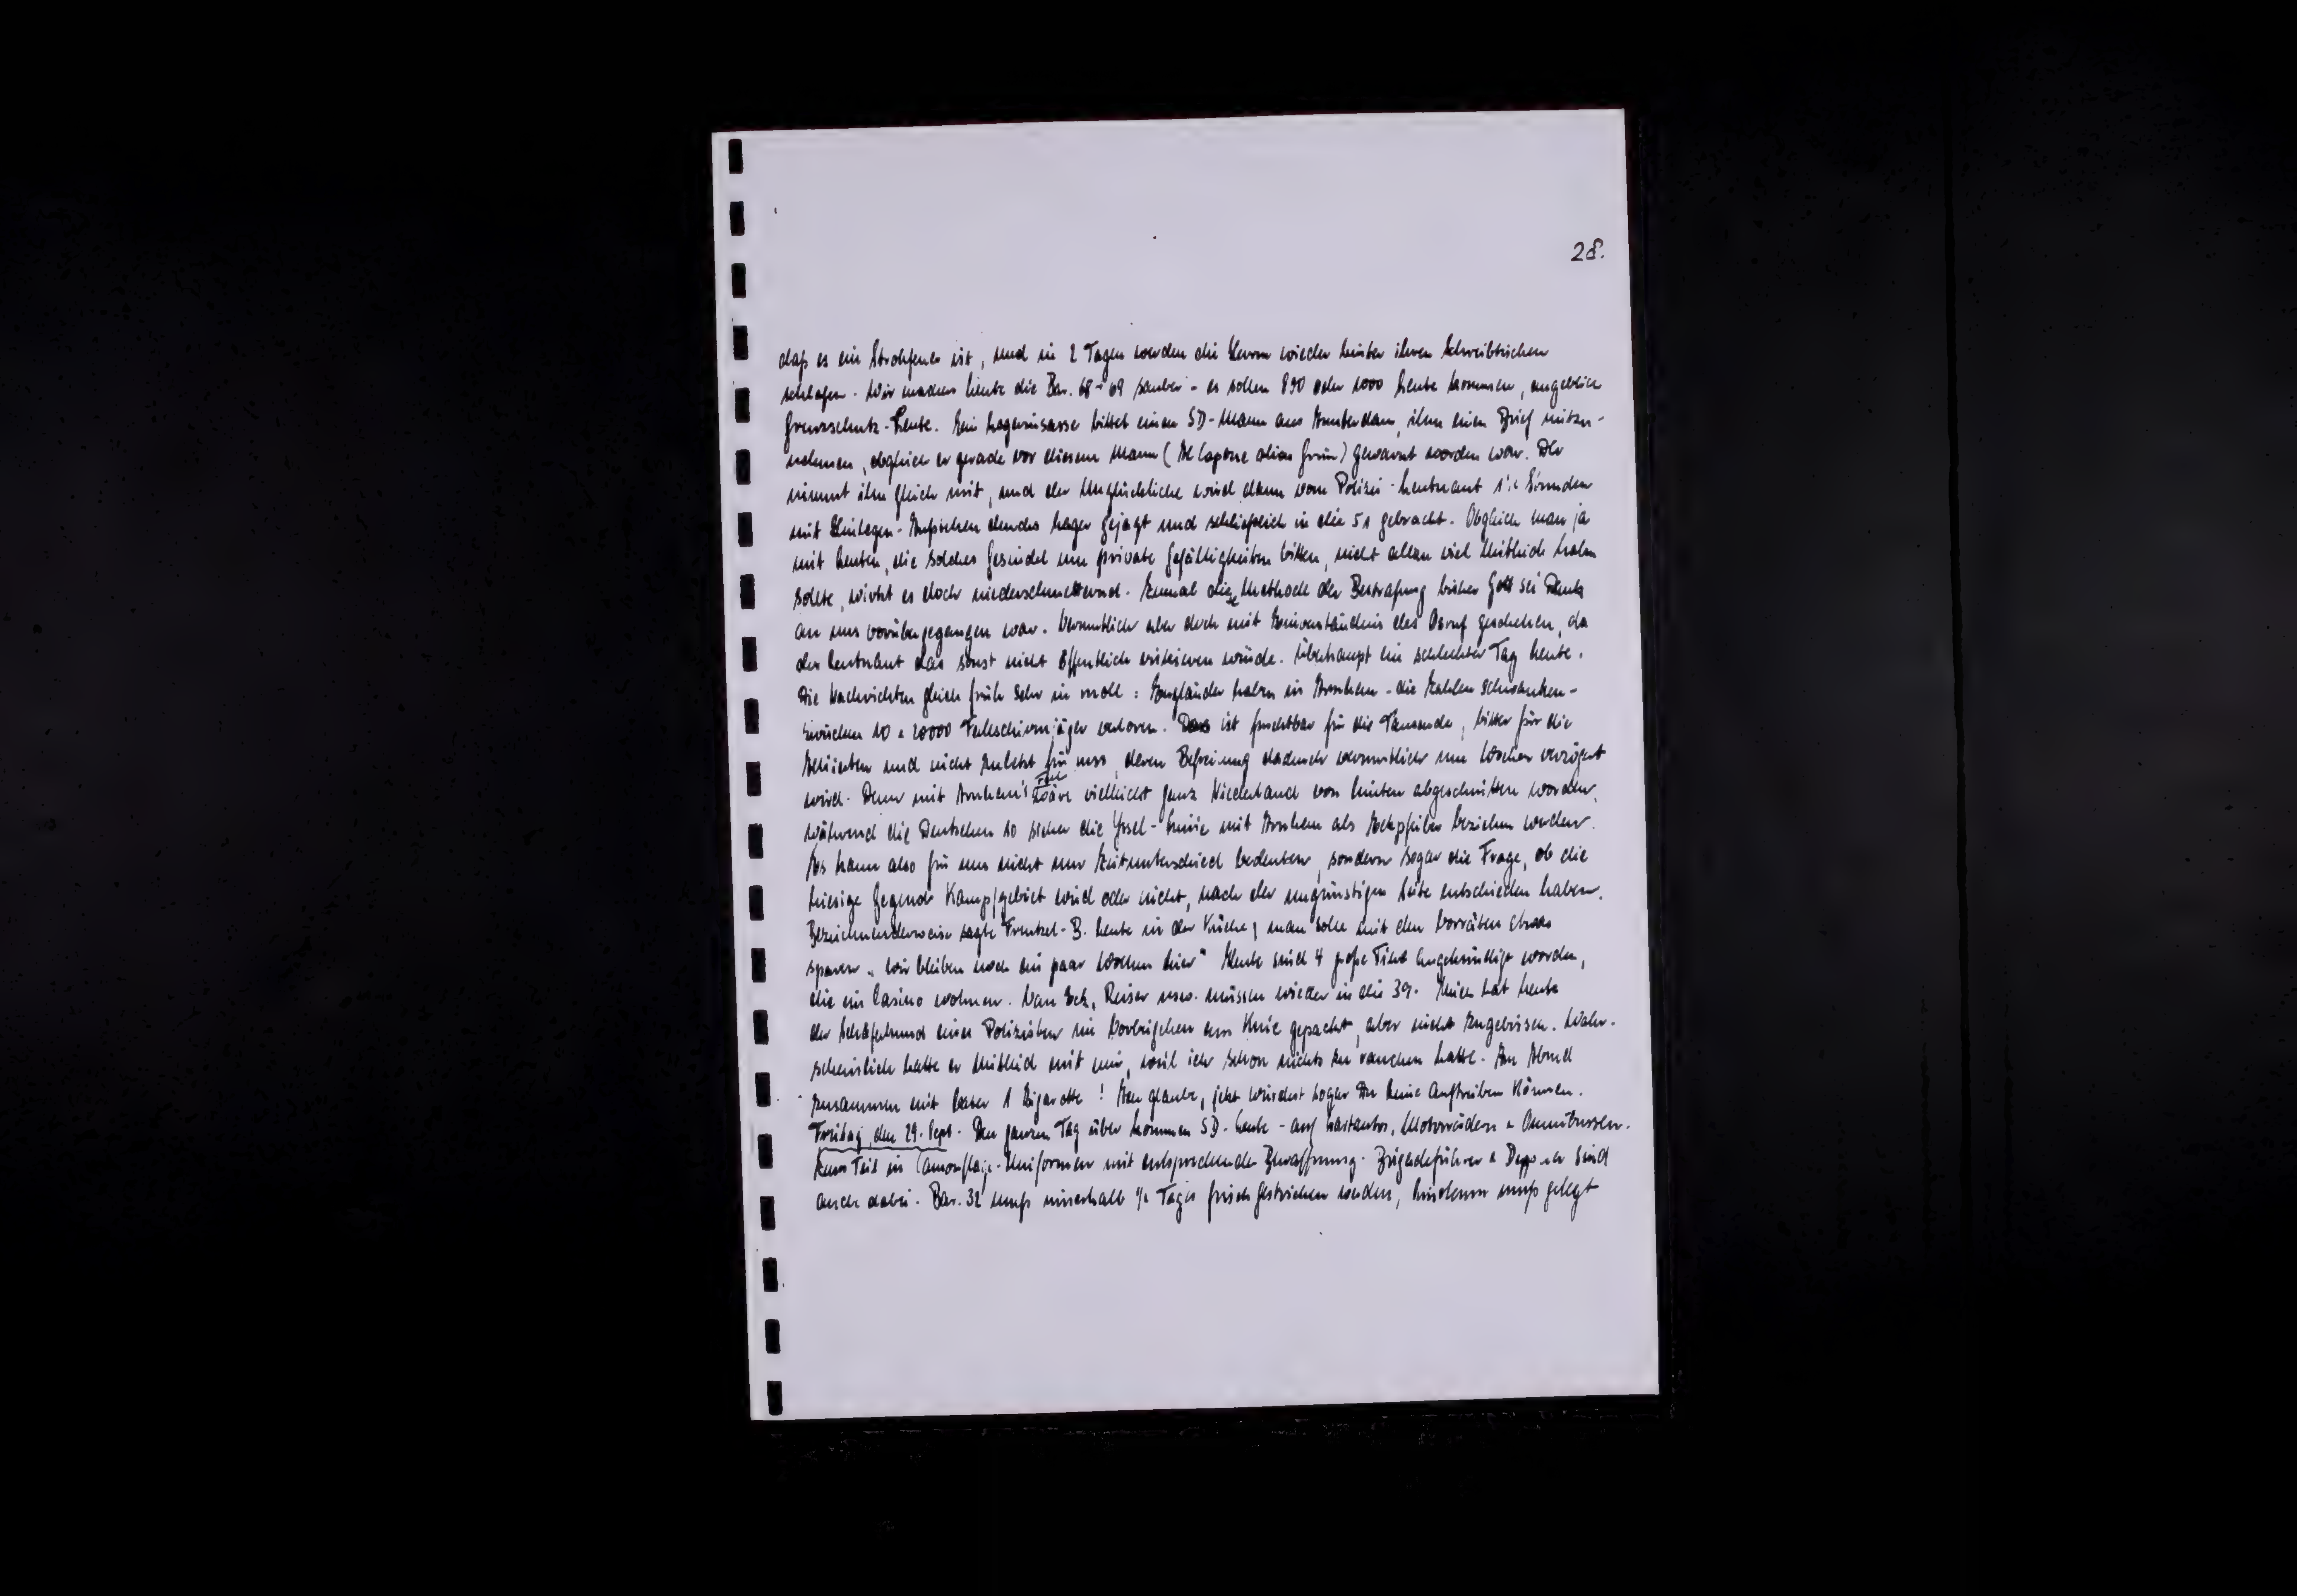 28.
daß es ein Strohfeuer ist, und in 2 Tagen werden die Herrn wieder hinter ihren Schreibtischen
schlafen. Wir machen heute die Bar. 68 + 69 sauber - es sollen 890 oder 1000 Leute kommen, angeblich
Grenzschutz-Leute. Ein Lagerinsasse bittet einen SD-Mann aus Amsterdam, ihm einen Brief mitzu-
nehmen, obgleich er gerade vor diesem Mann (Al Capone alias Grün) gewarnt worden war. Der
nimmt ihn gleich mit, und der Unglückliche wird dann vom Polizei-Leutnant 1½ Stunden
mit Hinlegen-Aufstehen durchs Lager gejagt und schließlich in die 51 gebracht. Obgleich man ja
mit Leuten, die solches Gesindel um private Gefälligkeiten bitten, nicht allzu viel Mitleid haben
sollte, wirkt es doch niederschmetternd. Zumal diese Methode der Bestrafung bisher Gott sei Dank
an uns vorübergegangen war. Vermutlich aber doch mit Einverständnis des Ostuf geschehen, da
der Leutnant das sonst nicht öffentlich riskieren würde. Überhaupt ein schlechter Tag heute.
Die Nachrichten gleich früh sehr in moll: Engländer haben in Arnhem - die Zahlen schwanken -
zwischen 10 u 20000 Fallschirmjäger verloren. Das ist furchtbar für die Tausende, bitter für die
Alliierten und nicht zuletzt für uns, deren Befreiung dadurch vermutlich um Wochen verzögert
wird. Denn mit Arnhem's Fall wäre vielleicht ganz Niederland von hinten abgeschnitten worden,
während die Deutschen so sicher die Yssel-Linie mit Arnhem als Eckpfeiler beziehen werden.
Es kann also für uns nicht nur Zeitunterschied bedeuten, sondern sogar die Frage, ob die
hiesige Gegend Kampfgebiet wird oder nicht, nach der ungünstigen Seite entschieden haben.
Bezeichnenderweise sagte Frentzel-B. heute in der Küche, man solle mit den Vorräten etwas
sparen „wir bleiben noch ein paar Wochen hier" Heute sind 4 große Tiere angekündigt worden,
die im Casino wohnen. Van Eck, Reiser usw. müssen wieder in die 39. Mich hat heute
der Schäferhund eines Polizisten im Vorbeigehen am Knie gepackt, aber nicht zugebissen. Wahr-
scheinlich hatte er Mitleid mit mir, weil ich schon nichts zu rauchen hatte. Am Abend
zusammen mit Vater 1 Zigarette! Ich glaube, jetzt würdest sogar Du keine auftreiben können.
Freitag, den 29. Sept. Den ganzen Tag über kommen SD-Leute - auf Lastautos, Motorrädern u Omnibussen.
Zum Teil in Camouflage-Uniformen mit entsprechender Bewaffnung. Brigadeführer u Deppner sind
auch dabei. Bar. 32 muß innerhalb ½ Tages frisch gestrichen werden, Linoleum muß gelegt